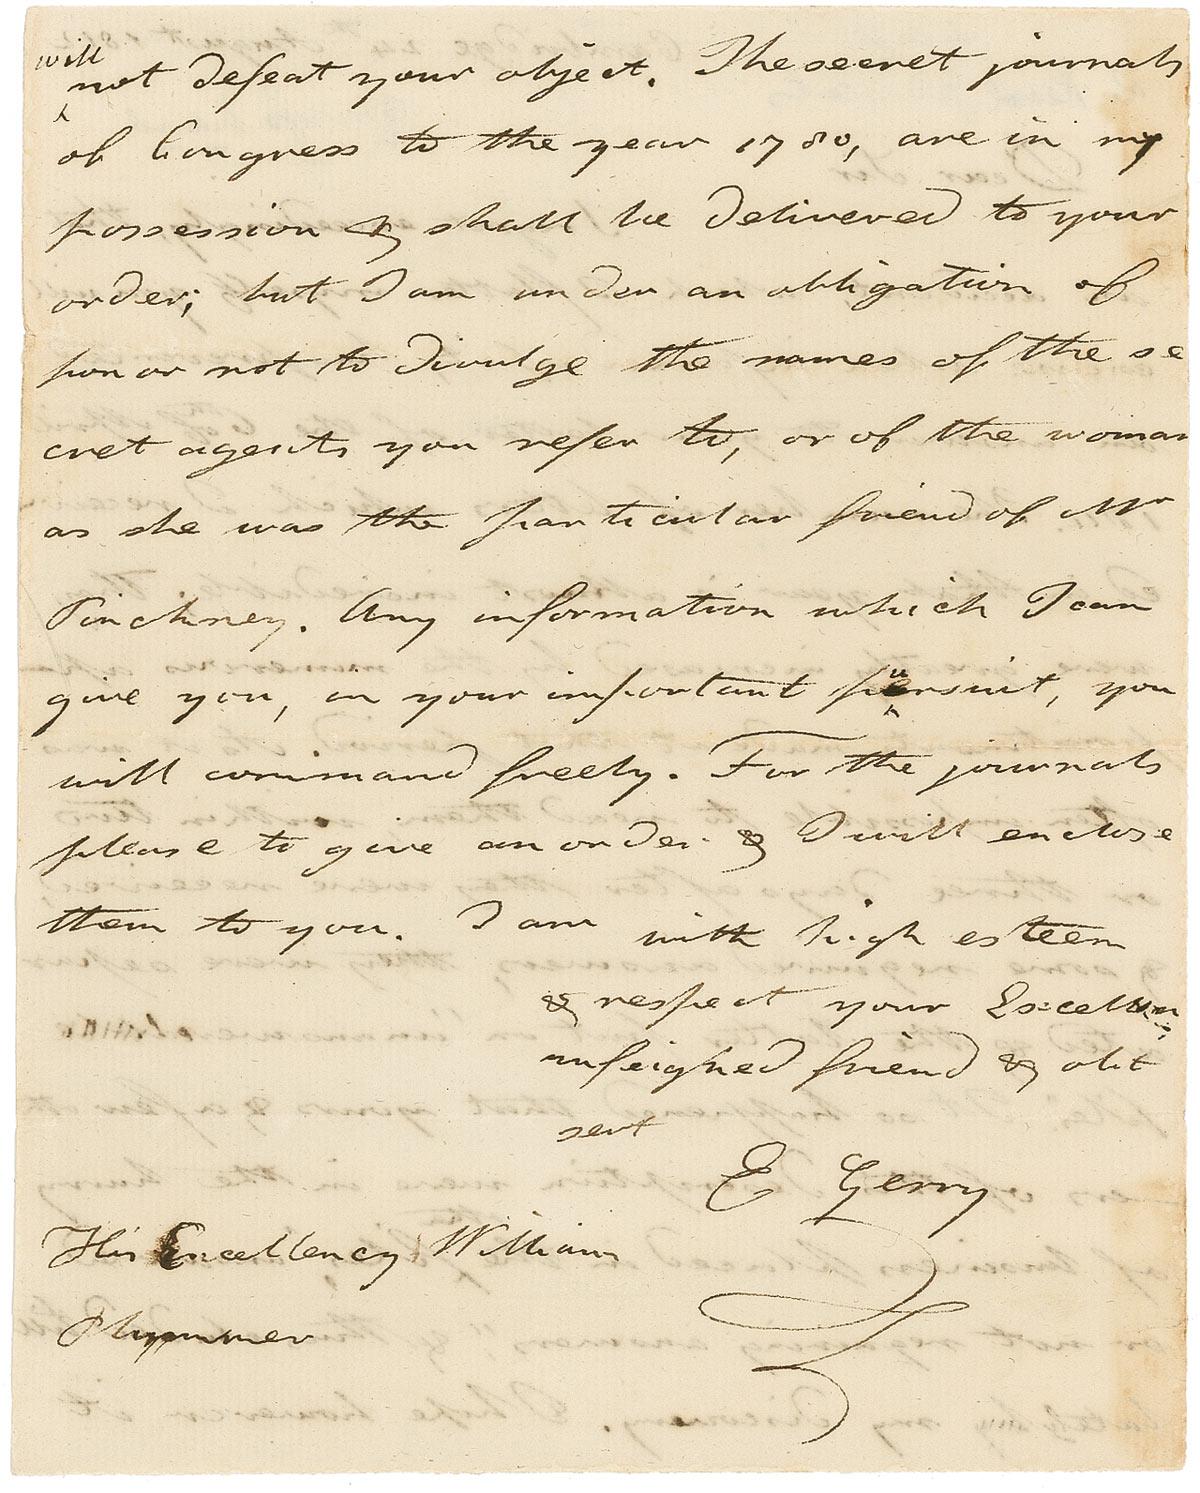 will
not defeat your object. The secret journals
of Congress to the year 1780, are in my
possession & shall be delivered to your
order; but I am under an obligation of
honor not to divulge the names of the se
cret agents you refer to, or of the woman
as she was the particular friend of Mr
Pinckney. Any information which I can
give you, in your important pursuit, you
will command freely. For the journals
please to give an order & I will enclose
them to you. I am with high esteem
& respect your
unfeigned friend & obt
sert
E Gerry
His Excellency William
Plummer